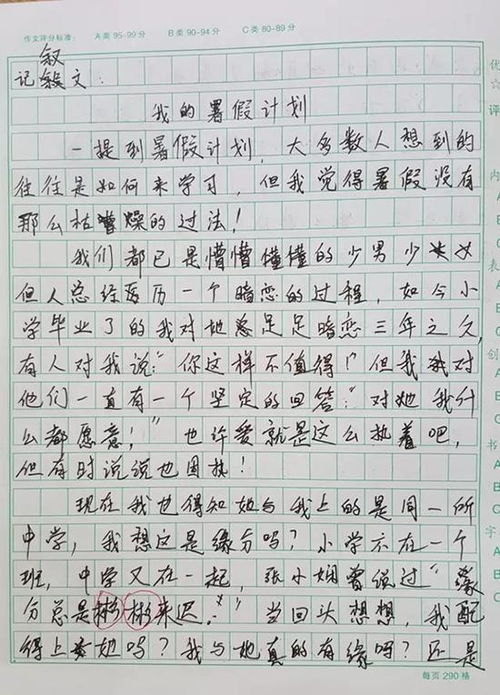 作文评分标准： A类 95-99分 B类 90-94分 C类 80-89分
叙
记叙文：
我的暑假计划
一提到暑假计划，大多数人想到的
往往是如何来学习，但我觉得暑假没有
那么枯燥的过法！
我们都已是懵懵懂懂的少男少女
但人总经历历一个暗恋的过程，如今小
学毕业了的我对她足足暗恋三年之久，
有人对我说："你这样不值得！"但我对
他们一直有一个坚定的回答："对她我什
么都愿意！"也许爱就是这么执着吧，
但有时说说也固执！
现在我也得知她与我上的是同一所
中学，我想这是缘分吗？小学不在一个
班，中学又在一起，张小娴曾说过"缘
分总是彬彬来迟."当回头想想，我配
得上她吗？我与她真的有缘吗？还是
每页 290 格
优
☆
评
内
A
B
C
表
A
B
C
创
A
B
C
书
A
B
C
字